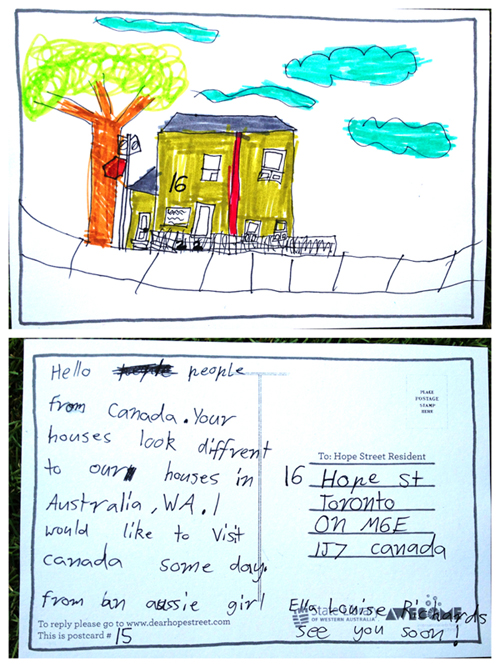 16
Hello people people
from Canada. Your
houses look diffrent
to our houses in
Australia, WA. I
would like to visit
canada some day.
from an aussie girl Ella Louise Richards
see you soon!
To reply please go to www.dearhopestreet.com
This is postcard # 15
PLACE
POSTAGE
STAMP
HERE
To: Hope Street Resident
16 Hope st
Toronto
ON M6E
1J7 canada
State Library
OF WESTERN AUSTRALIA
AWESOME